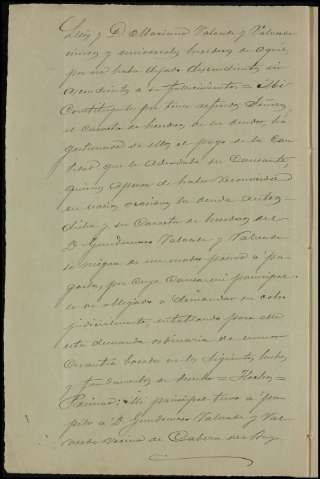 Luis y Dª Mariana Valverde y Valverde
únicos y universales herederos de aquel
por no haber dejado descendientes ni
ascendientes a su fallecimiento = Mi
Constituyente por cinco
el caracter de herederos en la deuda ha
gestionado de ellos el pago de la can-
tidad que le adeudaba su Causante,
quienes apesar de haber reconocido
en varias ocasiones la deuda antes
dicha y su caracter de herederos de
D. Gumersindo Valverde y Valverde
se niegan de un modo pasivo a pa-
garla, por cuya causa mi principal
se ve obligado a demandar su cobro
judicialmente, entablando para ello
esta demanda ordinaria de menor
Cuantia basada en los siguientes hechos
y fundamentos de derecho = Hechos =
Primero: Mi principal
a D. Gumersindo Valverde y Val-
verde vecino de Cabeza del Buey